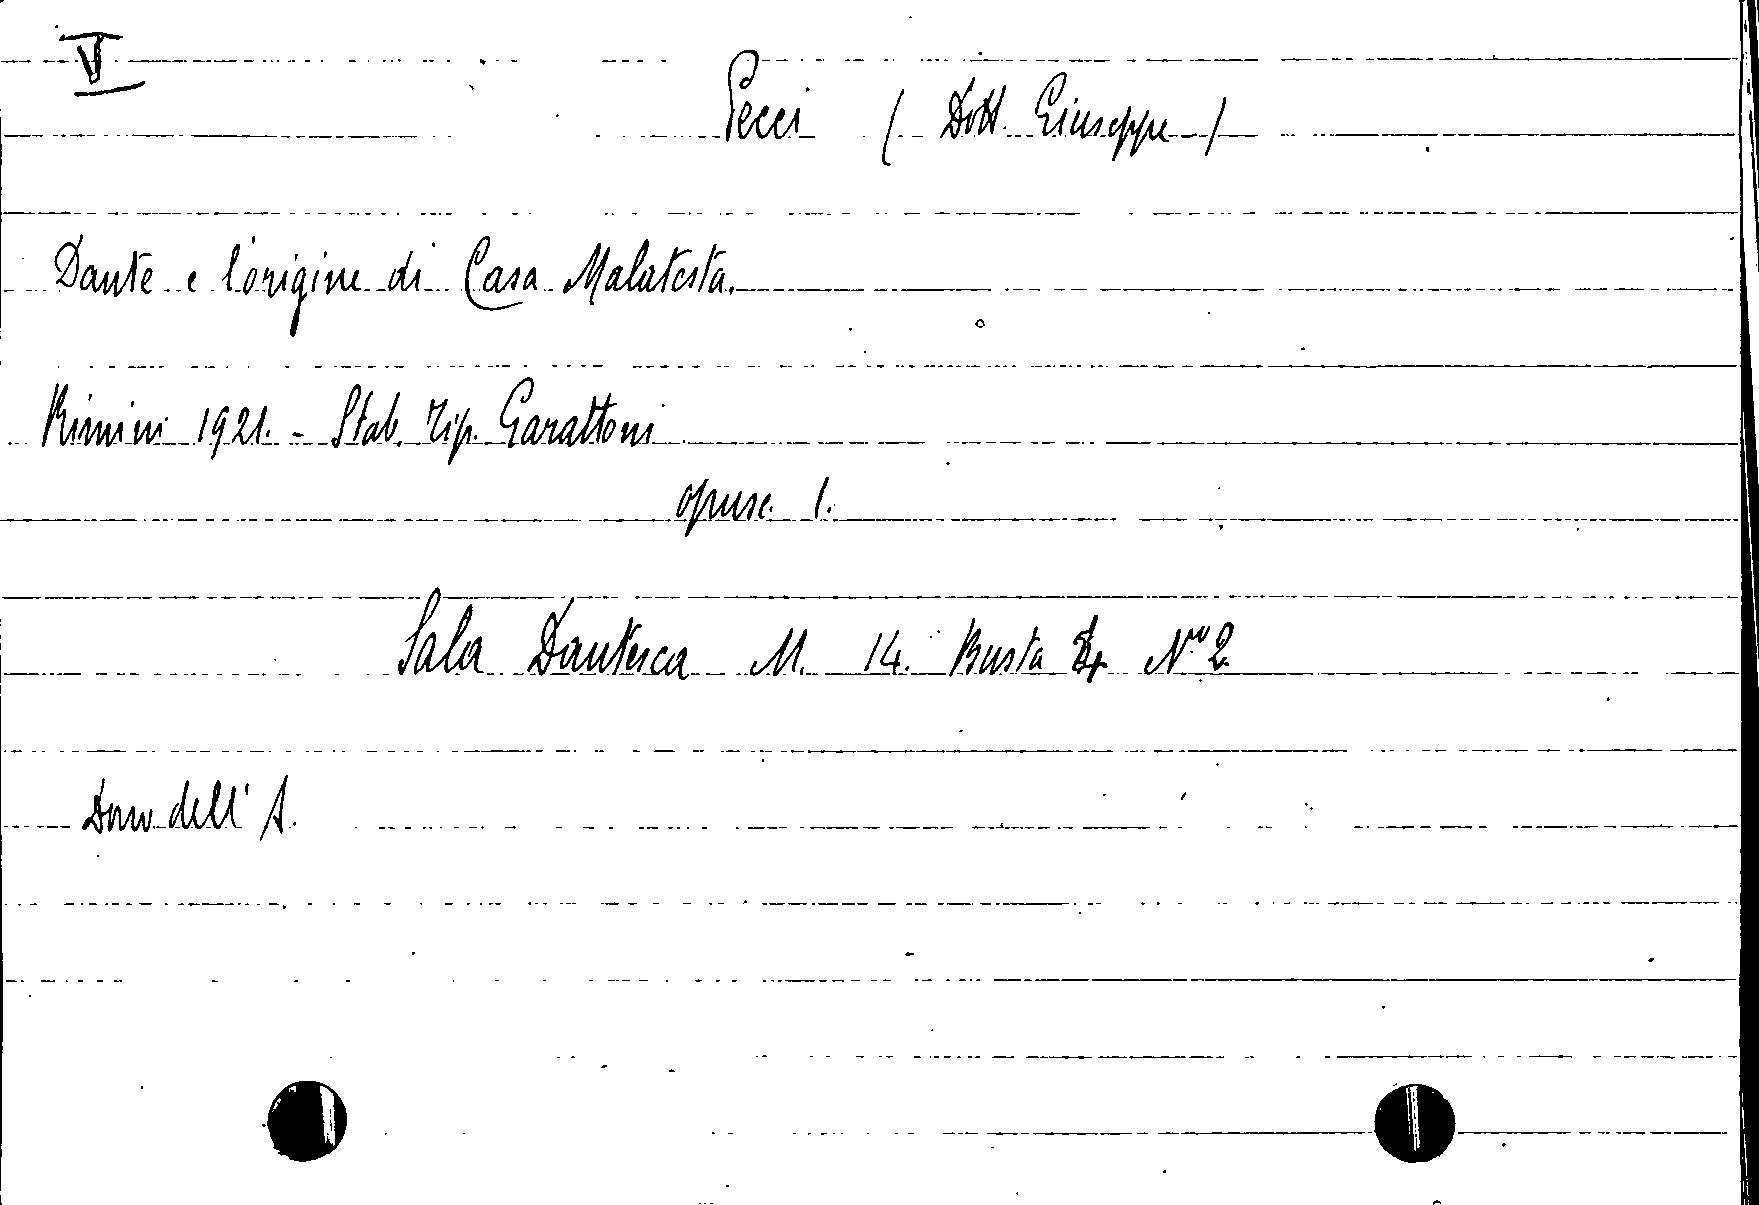 V
Pecci (Dott. Giuseppe)
Dante e l'origine di Casa Malatesta.
Rimini 1921. - Stab. Tip. Garattoni
opusc. 1.
Sala Dantesca M. 14. Busta N.ro 2.
Dono dell' A.